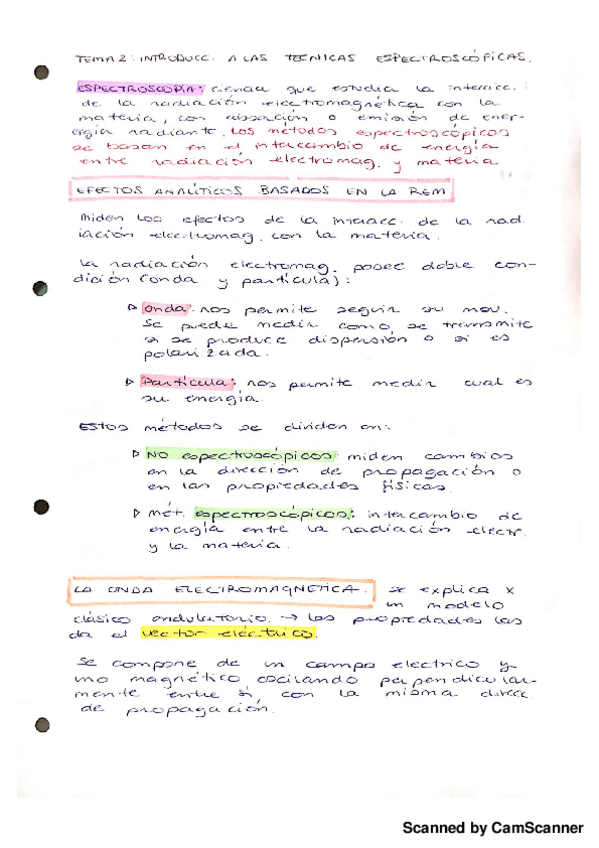 TEMA 2: INTRODUCC. A LAS TECNICAS ESPECTROSCÓPICAS.
ESPECTROSCOPIA: ciencia que estudia la interacc.
de la radiación electromagnética con la
materia, con absorción o emisión de ener-
ergía radiante. Los métodos espectroscópicos
se basan en el intercambio de energía
entre radiación electromag. y materia
EFECTOS ANALÍTICOS BASADOS EN LA REM.
Miden los efectos de la interacc. de la rad
iación electromag. con la materia.
La radiación electromag. posee doble con-
dición (onda y partícula):
▷ Onda: nos permite seguir su mov.
Se puede medir como, se transmite
si se produce dispersión o si es
polarizada.
▷ Partícula: nos permite medir cual es
su energía.
Estos métodos se dividen en:
▷ NO espectroscópicos: miden cambios
en la dirección de propagación o
en las propiedades físicas.
▷ Mét. espectroscópicos: intercambio de
energía entre la radiación electr.
y la materia.
LA ONDA ELECTROMAGNETICA. se explica x
un modelo
clásico ondulatorio. → las propiedades las
da el vector eléctrico.
Se compone de un campo electrico y
uno magnético oscilando perpendicular-
mente entre si, con la misma direcc.
de propagación.
Scanned by CamScanner